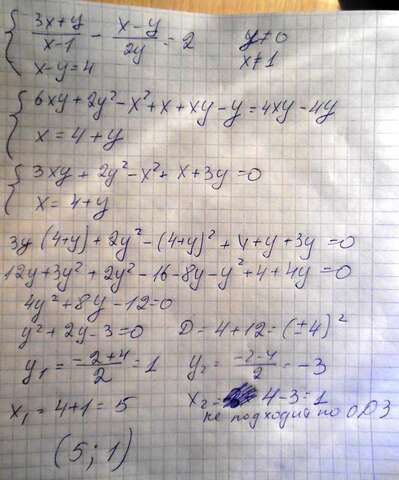 { (3x+y)/(x-1) - (x-y)/(2y) = 2   y≠0
x-y=4   x≠1
{ 6xy+2y²-x²+x+xy-y=4xy-4y
x=4+y
{ 3xy+2y²-x²+x+3y=0
x=4+y
3y(4+y)+2y²-(4+y)²+4+y+3y=0
12y+3y²+2y²-16-8y-y²+4+4y=0
4y²+8y-12=0
y²+2y-3=0   D=4+12=(±4)²
y₁=(-2+4)/2=1   y₂=(-2-4)/2=-3
x₁=4+1=5   x₂=4-3=1
не подходит по ОДЗ
(5; 1)